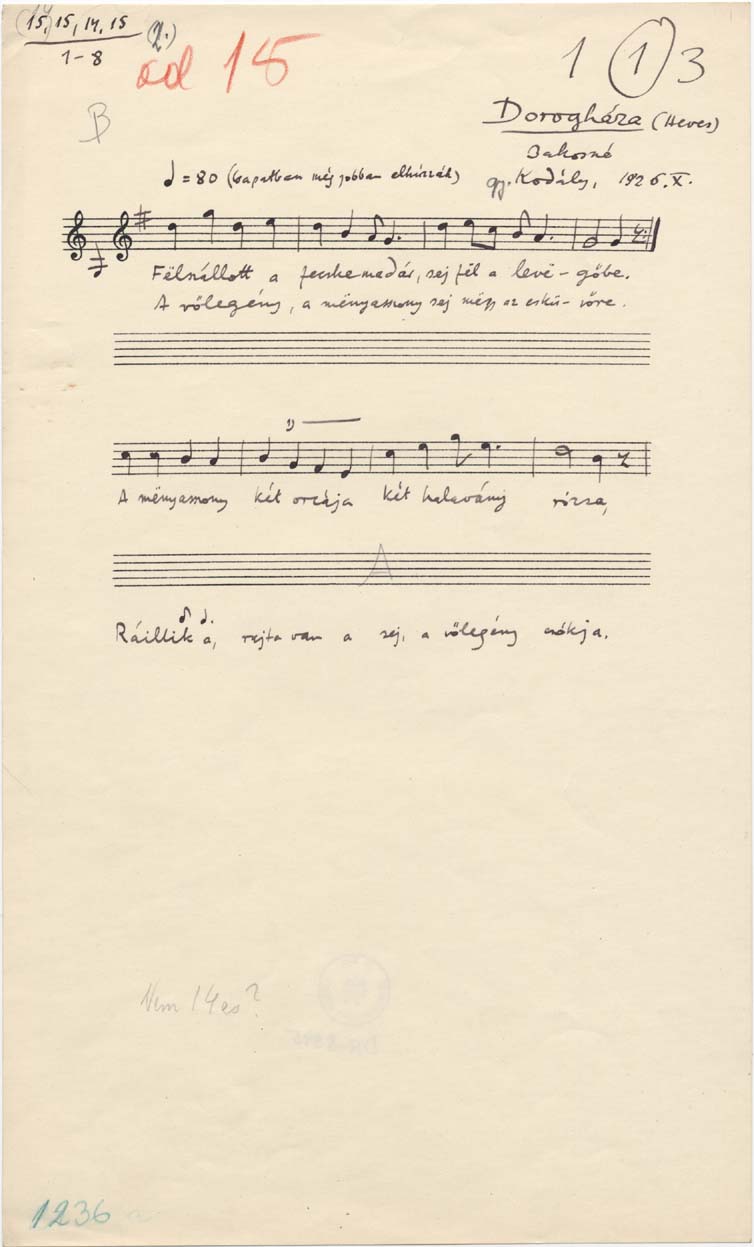 15, 15, 14, 15 (2.)
1-8
ad 18
1 1 3
B
Dorogháza (Heves)
Bakosné
gy. Kodály, 1926. X.
= 80 (csapatban még jobban elhúzzák)
Fëlszállott a fecskemadár, sej fël a levë-gőbe.
A vőlegény, a mënyasszony sej mëgy az eskü-vőre.
1)
A mënyasszony két orcája két halavány rózsa,
A
Ráillik a, rajta van a sej, a vőlegény csókja.
Nem 14es?
1236